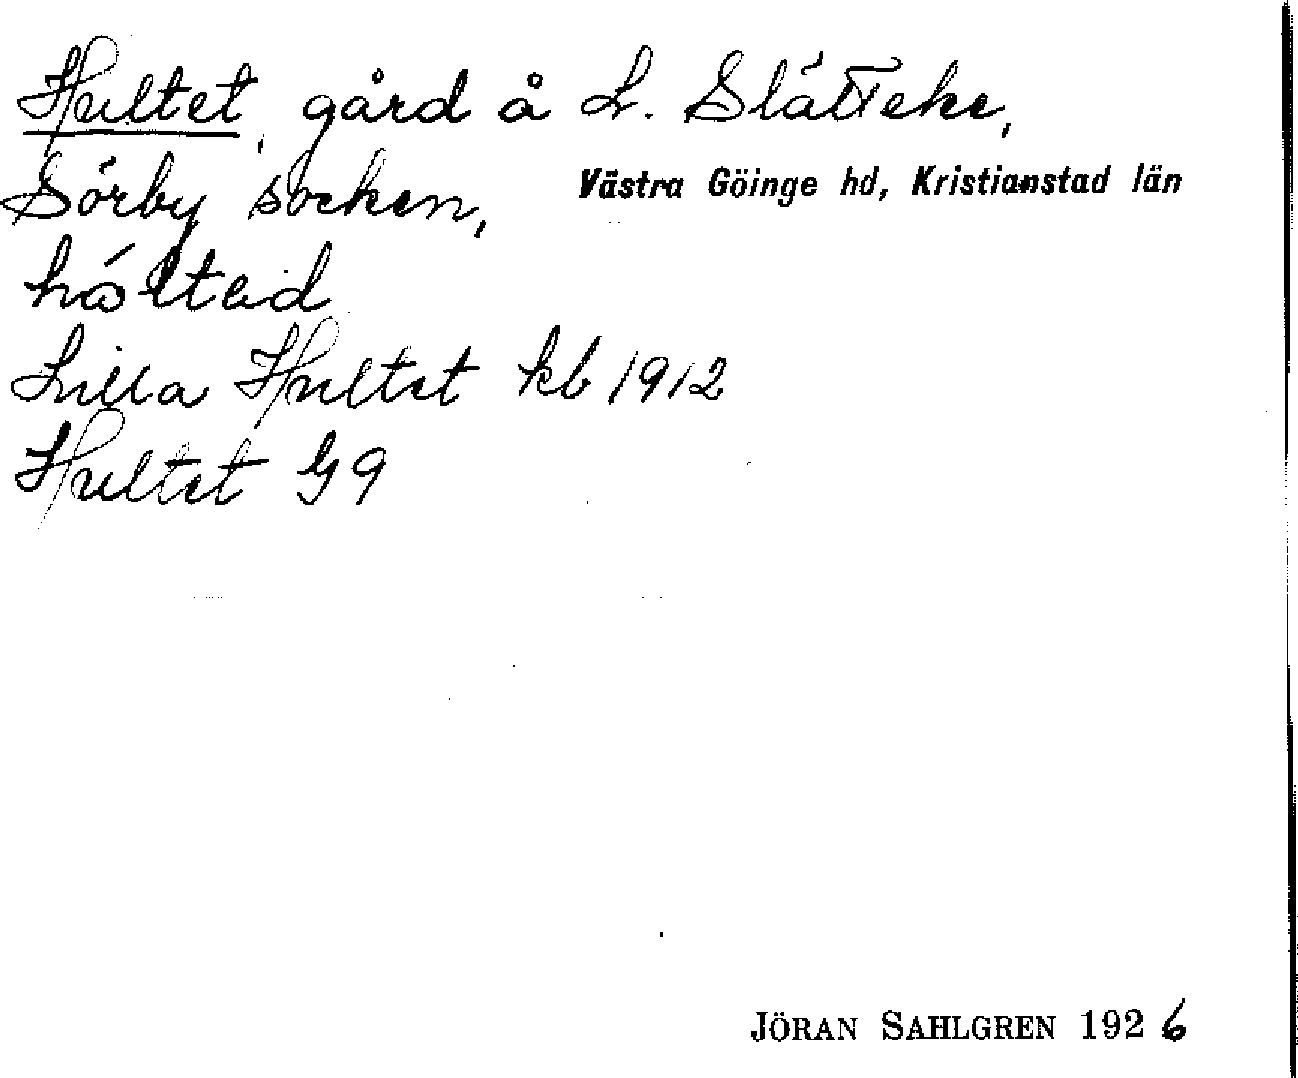 Hultet, gård å L. Slätteke,
Sörby socken, Västra Göinge hd, Kristianstad län
Lilla Hultet kb 1912
Hultet G9
JÖRAN SAHLGREN 1926